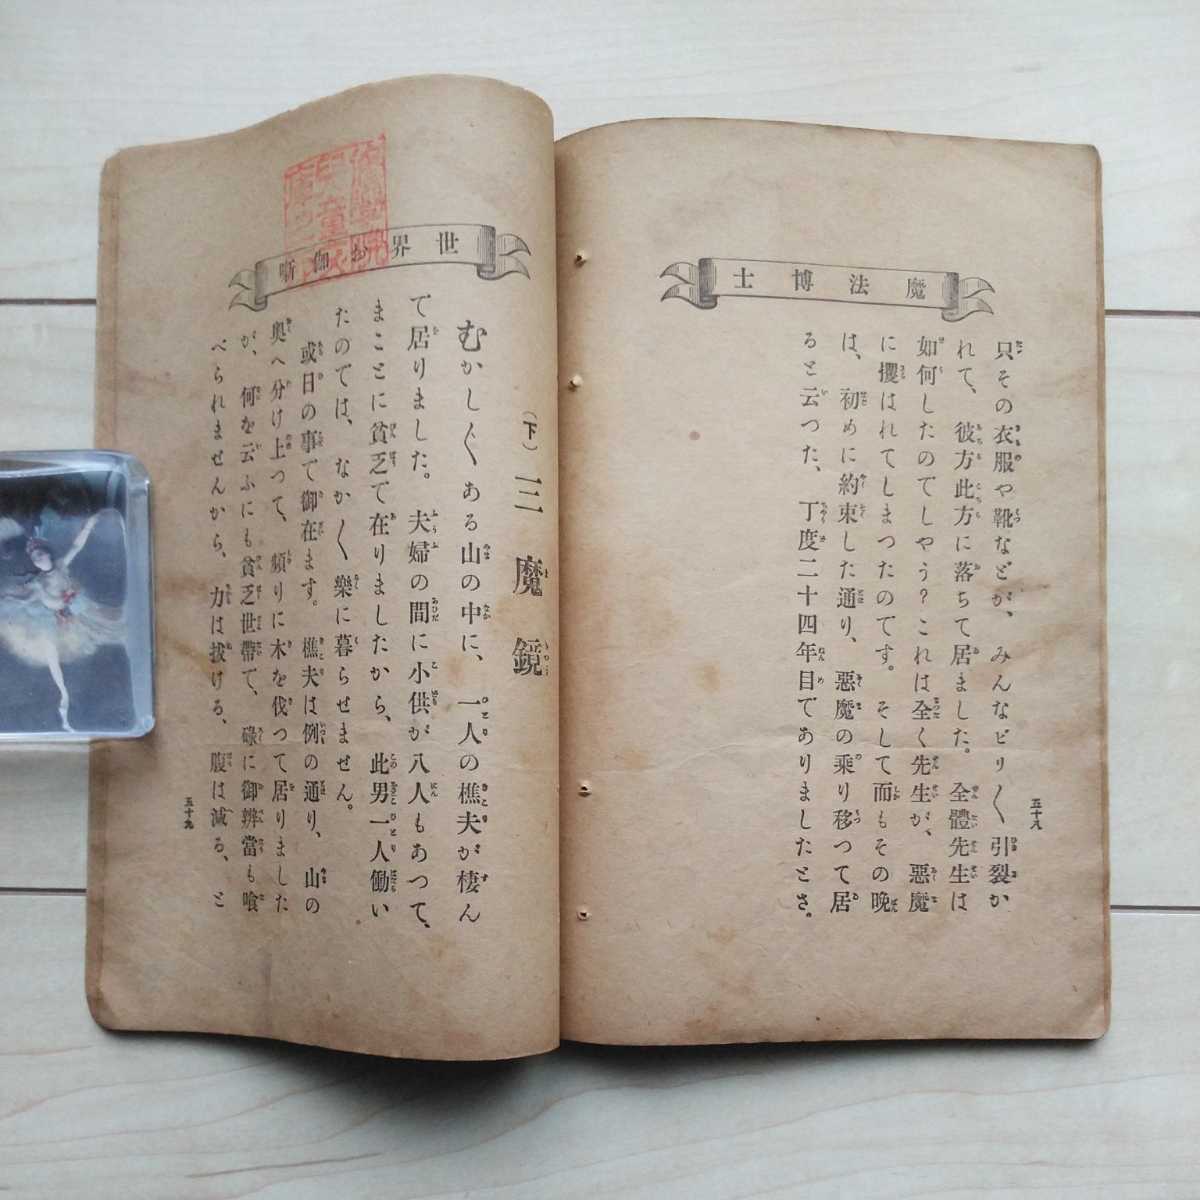 魔法博士
只その衣服や靴などが、みんなビリ〳〵引裂か
れて、彼方此方に落ちて居ました。全體先生は
如何したのでしやう?これは全く先生が、惡魔
に攫はれてしまつたのです。そして而もその晩
は、初めに約束した通り、惡魔の乘り移つて居
ると云つた、丁度二十四年目でありましたとさ。
五十八
世界お伽噺
(下)三魔鏡
むかし〳〵ある山の中に、一人の樵夫が棲ん
で居りました。夫婦の間に小供が八人もあつて、
まことに貧乏で在りましたから、此男一人働い
たのでは、なか〳〵樂に暮らせません。
或日の事で御在ます。樵夫は例の通り、山の
奥へ分け上つて、頻りに木を伐つて居りました
が、何を云ふにも貧乏世帶で、碌に御辨當も喰
べられませんから、力は拔ける、腹は減る、と
五十九